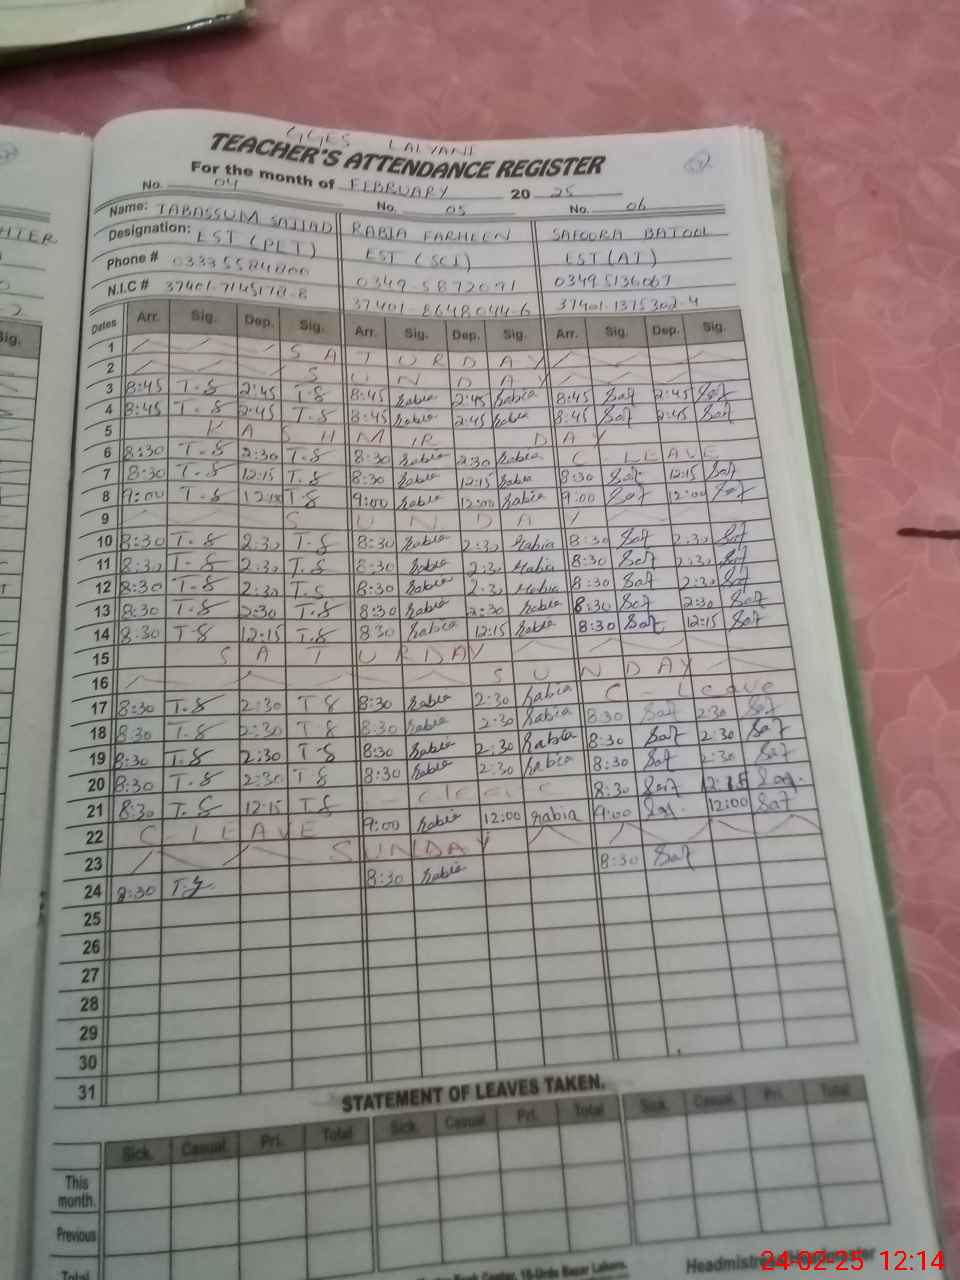 GGES LALYANI
TEACHER'S ATTENDANCE REGISTER
For the month of FEBRUARY 20 25
No. 04 No. 05 No. 06
Name: TABASSUM SAJJAD RABIA FARHEEN SAFOORA BATOOL
Designation: EST (PET) EST (SCI) EST (AT)
Phone # 0333 5584800 0349-5872091 0349 5136067
N.I.C # 37401-7145178-8 37401-8648044-6 37401-1375302-4
Dates Arr. Sig. Dep. Sig. Arr. Sig. Dep. Sig. Arr. Sig. Dep. Sig.
1 SATURDAY
2 SUNDAY
3 8:45 T.S 2:45 T.S 8:45 Rabia 2:45 Rabia 8:45 Saf 2:45 Saf
4 8:45 T.S 2:45 T.S 8:45 Rabia 2:45 Rabia 8:45 Saf 2:45 Saf
5 KASHMIR DAY
6 8:30 T.S 2:30 T.S 8:30 Rabia 2:30 Rabia C-LEAVE
7 8:30 T.S 12:15 T.S 8:30 Rabia 12:15 Rabia 8:30 Saf 12:15 Saf
8 9:00 T.S T.S 9:00 Rabia 12:00 Rabia 9:00 Saf 12:00 Saf
9 SUNDAY
10 8:30 T.S 2:30 T.S 8:30 Rabia 2:30 Rabia 8:30 Saf 2:30 Saf
11 8:30 T.S 2:30 T.S 8:30 Rabia 2:30 Rabia 8:30 Saf 2:30 Saf
12 8:30 T.S 2:30 T.S 8:30 Rabia 2:30 Rabia 8:30 Saf 2:30 Saf
13 8:30 T.S 2:30 T.S 8:30 Rabia 2:30 Rabia 8:30 Saf 2:30 Saf
14 8:30 T.S 12:15 T.S 8:30 Rabia 12:15 Rabia 8:30 Saf 12:15 Saf
15 SATURDAY
16 SUNDAY
17 8:30 T.S 2:30 T.S 8:30 Rabia 2:30 Rabia C-Leave
18 8:30 T.S 2:30 T.S 8:30 Rabia 2:30 Rabia 8:30 Saf 2:30 Saf
19 8:30 T.S 2:30 T.S 8:30 Rabia 2:30 Rabia 8:30 Saf 2:30 Saf
20 8:30 T.S 2:30 T.S 8:30 Rabia 2:30 Rabia 8:30 Saf 2:30 Saf
21 8:30 T.S 12:15 T.S 8:30 Saf 12:15 Saf
22 C-LEAVE 9:00 Rabia 12:00 Rabia 9:00 Saf 12:00 Saf
23 SUNDAY
24 8:30 T.S 8:30 Rabia 8:30 Saf
25
26
27
28
29
30
31
STATEMENT OF LEAVES TAKEN.
Sick. Casual. Pri. Total Sick. Casual. Pri. Total Sick. Casual. Pri. Total
This month.
Previous
Total
Urdu Bazar Lahore.
24-02-25 12:14